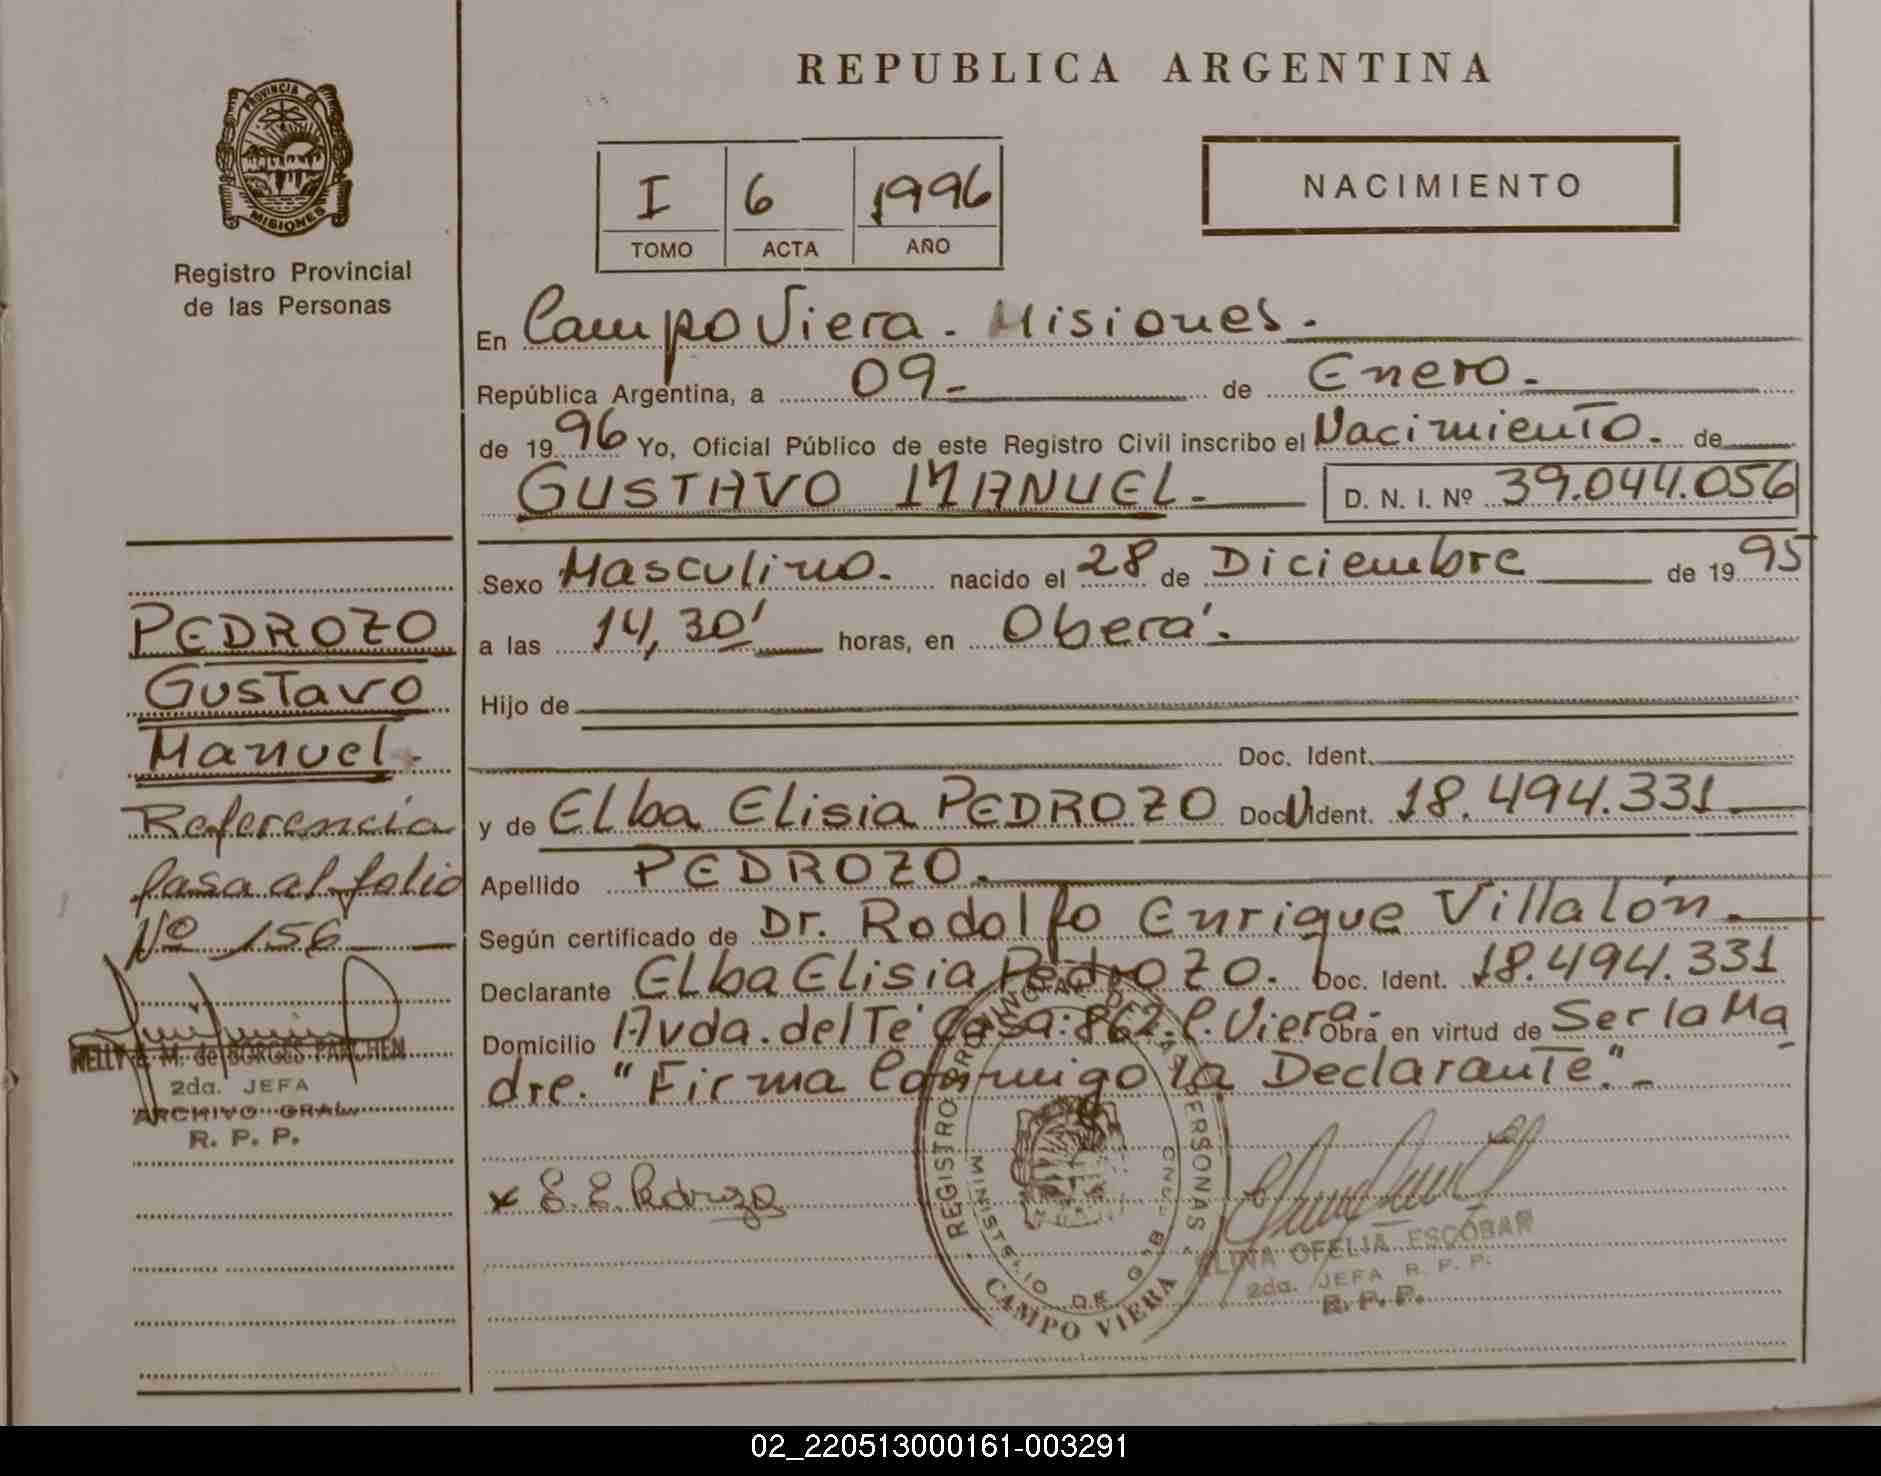 REPUBLICA ARGENTINA
PROVINCIA DE
MISIONES
Registro Provincial
de las Personas
I 6 1996
TOMO ACTA AÑO
NACIMIENTO
En Campo Viera - Misiones.
República Argentina, a 09- de Enero.
de 1996 Yo, Oficial Público de este Registro Civil inscribo el Nacimiento. de
GUSTAVO MANUEL- D. N. I. Nº 39.044.056
Sexo Masculino. nacido el 28 de Diciembre de 1995
a las 14,30' horas, en Oberá.
Hijo de
Doc. Ident.
y de Elba Elisia PEDROZO Doc. Ident. 18.494.331
Apellido PEDROZO.
Según certificado de Dr. Rodolfo Enrique Villalón.
Declarante Elba Elisia Pedrozo. Doc. Ident. 18.494.331
Domicilio Avda. del Té Casa: 862. C. Viera. Obra en virtud de Ser la Ma
dre. "Firma Conmigo la Declarante".
PEDROZO
Gustavo
Manuel.
Referencia
pasa al folio
Nº 156
NELLY E. M. de BORGES PARCHEN
2da. JEFA
ARCHIVO GRAL.
R. P. P.
x E. E. Pedrozo
REGISTRO PROVINCIAL DE LAS PERSONAS
MINISTERIO DE GOB
CAMPO VIERA
ALINA OFELIA ESCOBAR
2da. JEFA R. P. P.
R. P. P.
02_220513000161-003291